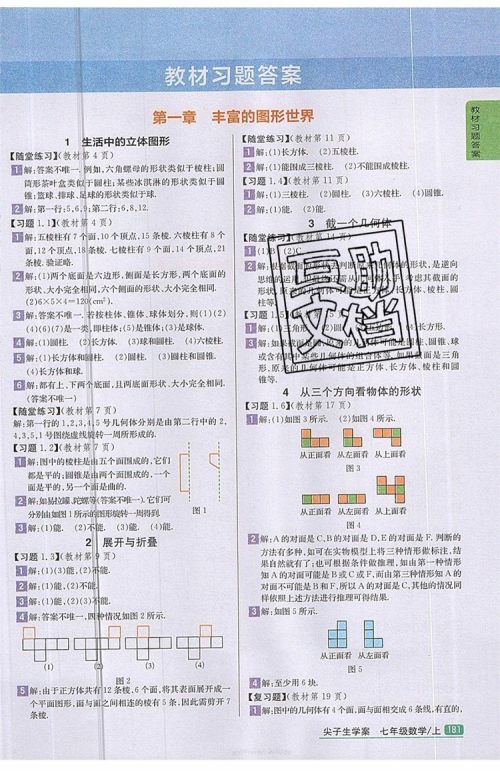 教材习题答案
教材习题答案
第一章 丰富的图形世界
1 生活中的立体图形
【随堂练习】(教材第 4 页)
1 解:答案不唯一.例如,六角螺母的形状类似于棱柱;圆
筒形茶叶盒类似于圆柱;某些冰淇淋的形状类似于圆
锥;篮球、排球、足球的形状类似于球.
2 解:第一行:5,6,9;第二行:6,8,12.
【习题 1.1】(教材第 4 页)
1 解:五棱柱有 7 个面,10 个顶点,15 条棱.六棱柱有 8 个
面,12 个顶点,18 条棱.七棱柱有 9 个面,14 个顶点,21
条棱.验证略.
2 解:(1)两个底面是六边形,侧面是长方形,两个底面的
形状、大小完全相同,六个侧面的形状、大小完全相同.
(2)6×5×4=120(cm²).
3 解:答案不唯一.若按柱体、锥体、球体划分,则(1)(2)
(4)(6)(7)是一类,即柱体;(5)是锥体;(3)是球体.
4 解:(1)圆柱. (2)长方体. (3)球和圆柱. (4)六棱柱.
5 解:(1)长方体和圆柱. (2)圆柱. (3)圆柱和圆锥.
(4)长方体和球.
6 解:都有上、下两个底面,且两底面形状、大小完全相同.
(答案不唯一)
【随堂练习】(教材第 7 页)
解:第一行的 1,2,3,4,5 号几何体分别是由第二行中的 2,
4,3,5,1 号图绕虚线旋转一周所形成的.
【习题 1.2】(教材第 7 页)
1 解:图中的棱柱是由五个面围成的,它们
都是平的;圆锥是由两个面围成的,一个
面是平的,另一个面是曲的.
2 解:如易拉罐、陀螺等(答案不唯一).它们可
分别由如图 1 所示的图形旋转一周得到.
图 1
3 解:(1)能. (2)不能. (3)能. (4)能.
2 展开与折叠
【习题 1.3】(教材第 9 页)
1 解:(1)(3)能,(2)不能.
2 解:(1)能.(2)不能.
3 解:(1)能,(2)(3)不能.
4 解:答案不唯一,四种情况如图 2 所示.
(1) (2) (3) (4)
图 2
5 解:由于正方体共有 12 条棱,6 个面,将其表面展开成一
个平面图形,面与面之间相连的棱有 5 条,因此需剪开 7
条棱.
【随堂练习】(教材第 11 页)
1 解:(1)长方体. (2)五棱柱.
2 解:(1)能围成三棱柱. (2)不能围成棱柱.
【习题 1.4】(教材第 11 页)
1 解:(1)三棱柱. (2)圆柱. (3)六棱柱. (4)圆锥.
2 解:(1)能. (2)能.
3 截一个几何体
【随堂练习】(教材第 14 页)
互助
文档
4 从三个方向看物体的形状
【习题 1.6】(教材第 17 页)
1 解:(1)如图 3 所示. (2)如图 4 所示.
从正面看 从左面看 从上面看
图 3
从正面看 从左面看 从上面看
图 4
2 解:A 的对面是 C,B 的对面是 D,E 的对面是 F.判断的
方法有多种,如可在实物模型上将三种情形做标注,结
果自然就有了;也可根据条件做推理,如由第一种情形
知 A 的对面可能是 B 或 C 或 F,而由第三种情形知 A 的
对面不可能是 B 和 F,所以 A 的对面是 C,其他的情况同
样依照上述方法进行推理可得结果.
3 解:如图 5 所示.
从正面看 从左面看
图 5
4 解:至少用 6 块.
【复习题】(教材第 19 页)
1 解:图中的几何体有 4 个面,面与面相交成 6 条线,有直的,
尖子生学案 七年级数学/上 181